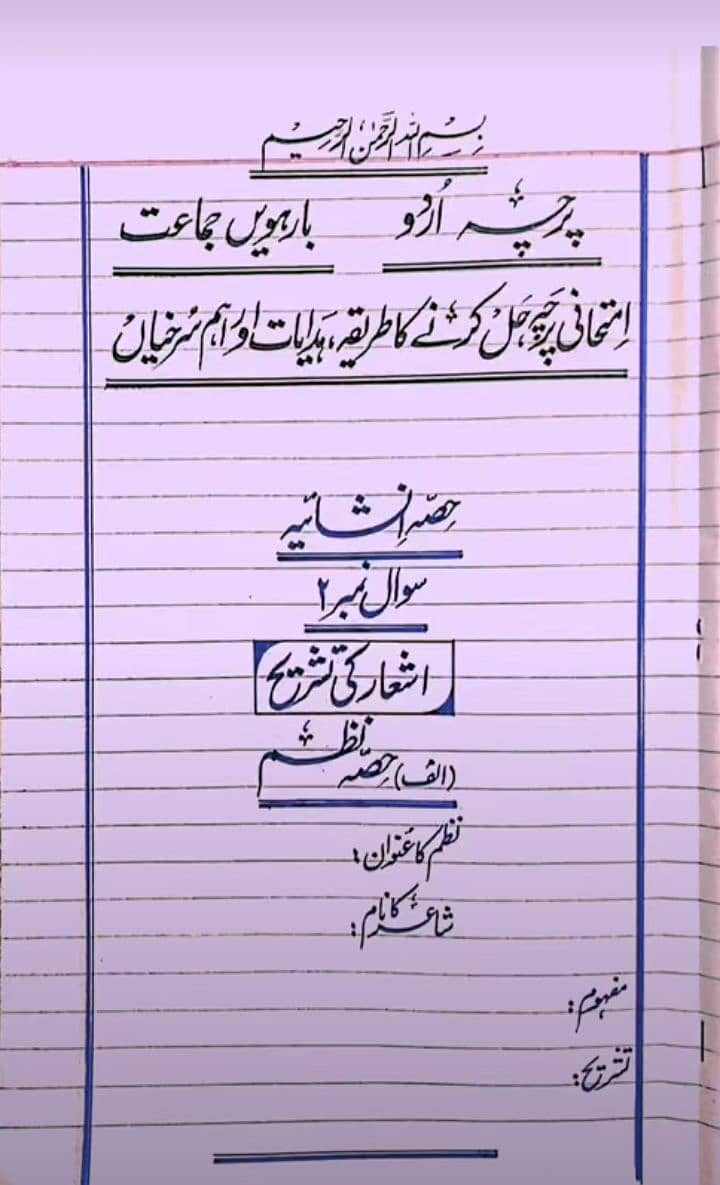 بِسْمِ اللہِ الرَّحمٰنِ الرَّحِیم
پرچہ اُردو بارہویں جماعت
اِمتحانی پرچہ حَل کرنے کا طریقہ، ہَدایات اور اہم سُرخیاں
حِصّہ اِنشائیہ
سوال نمبر ۲
اشعار کی تشریح
(الف) حِصّہ نظم
نظم کا عُنوان:
شاعر کا نام:
مفہوم:
تشریح: